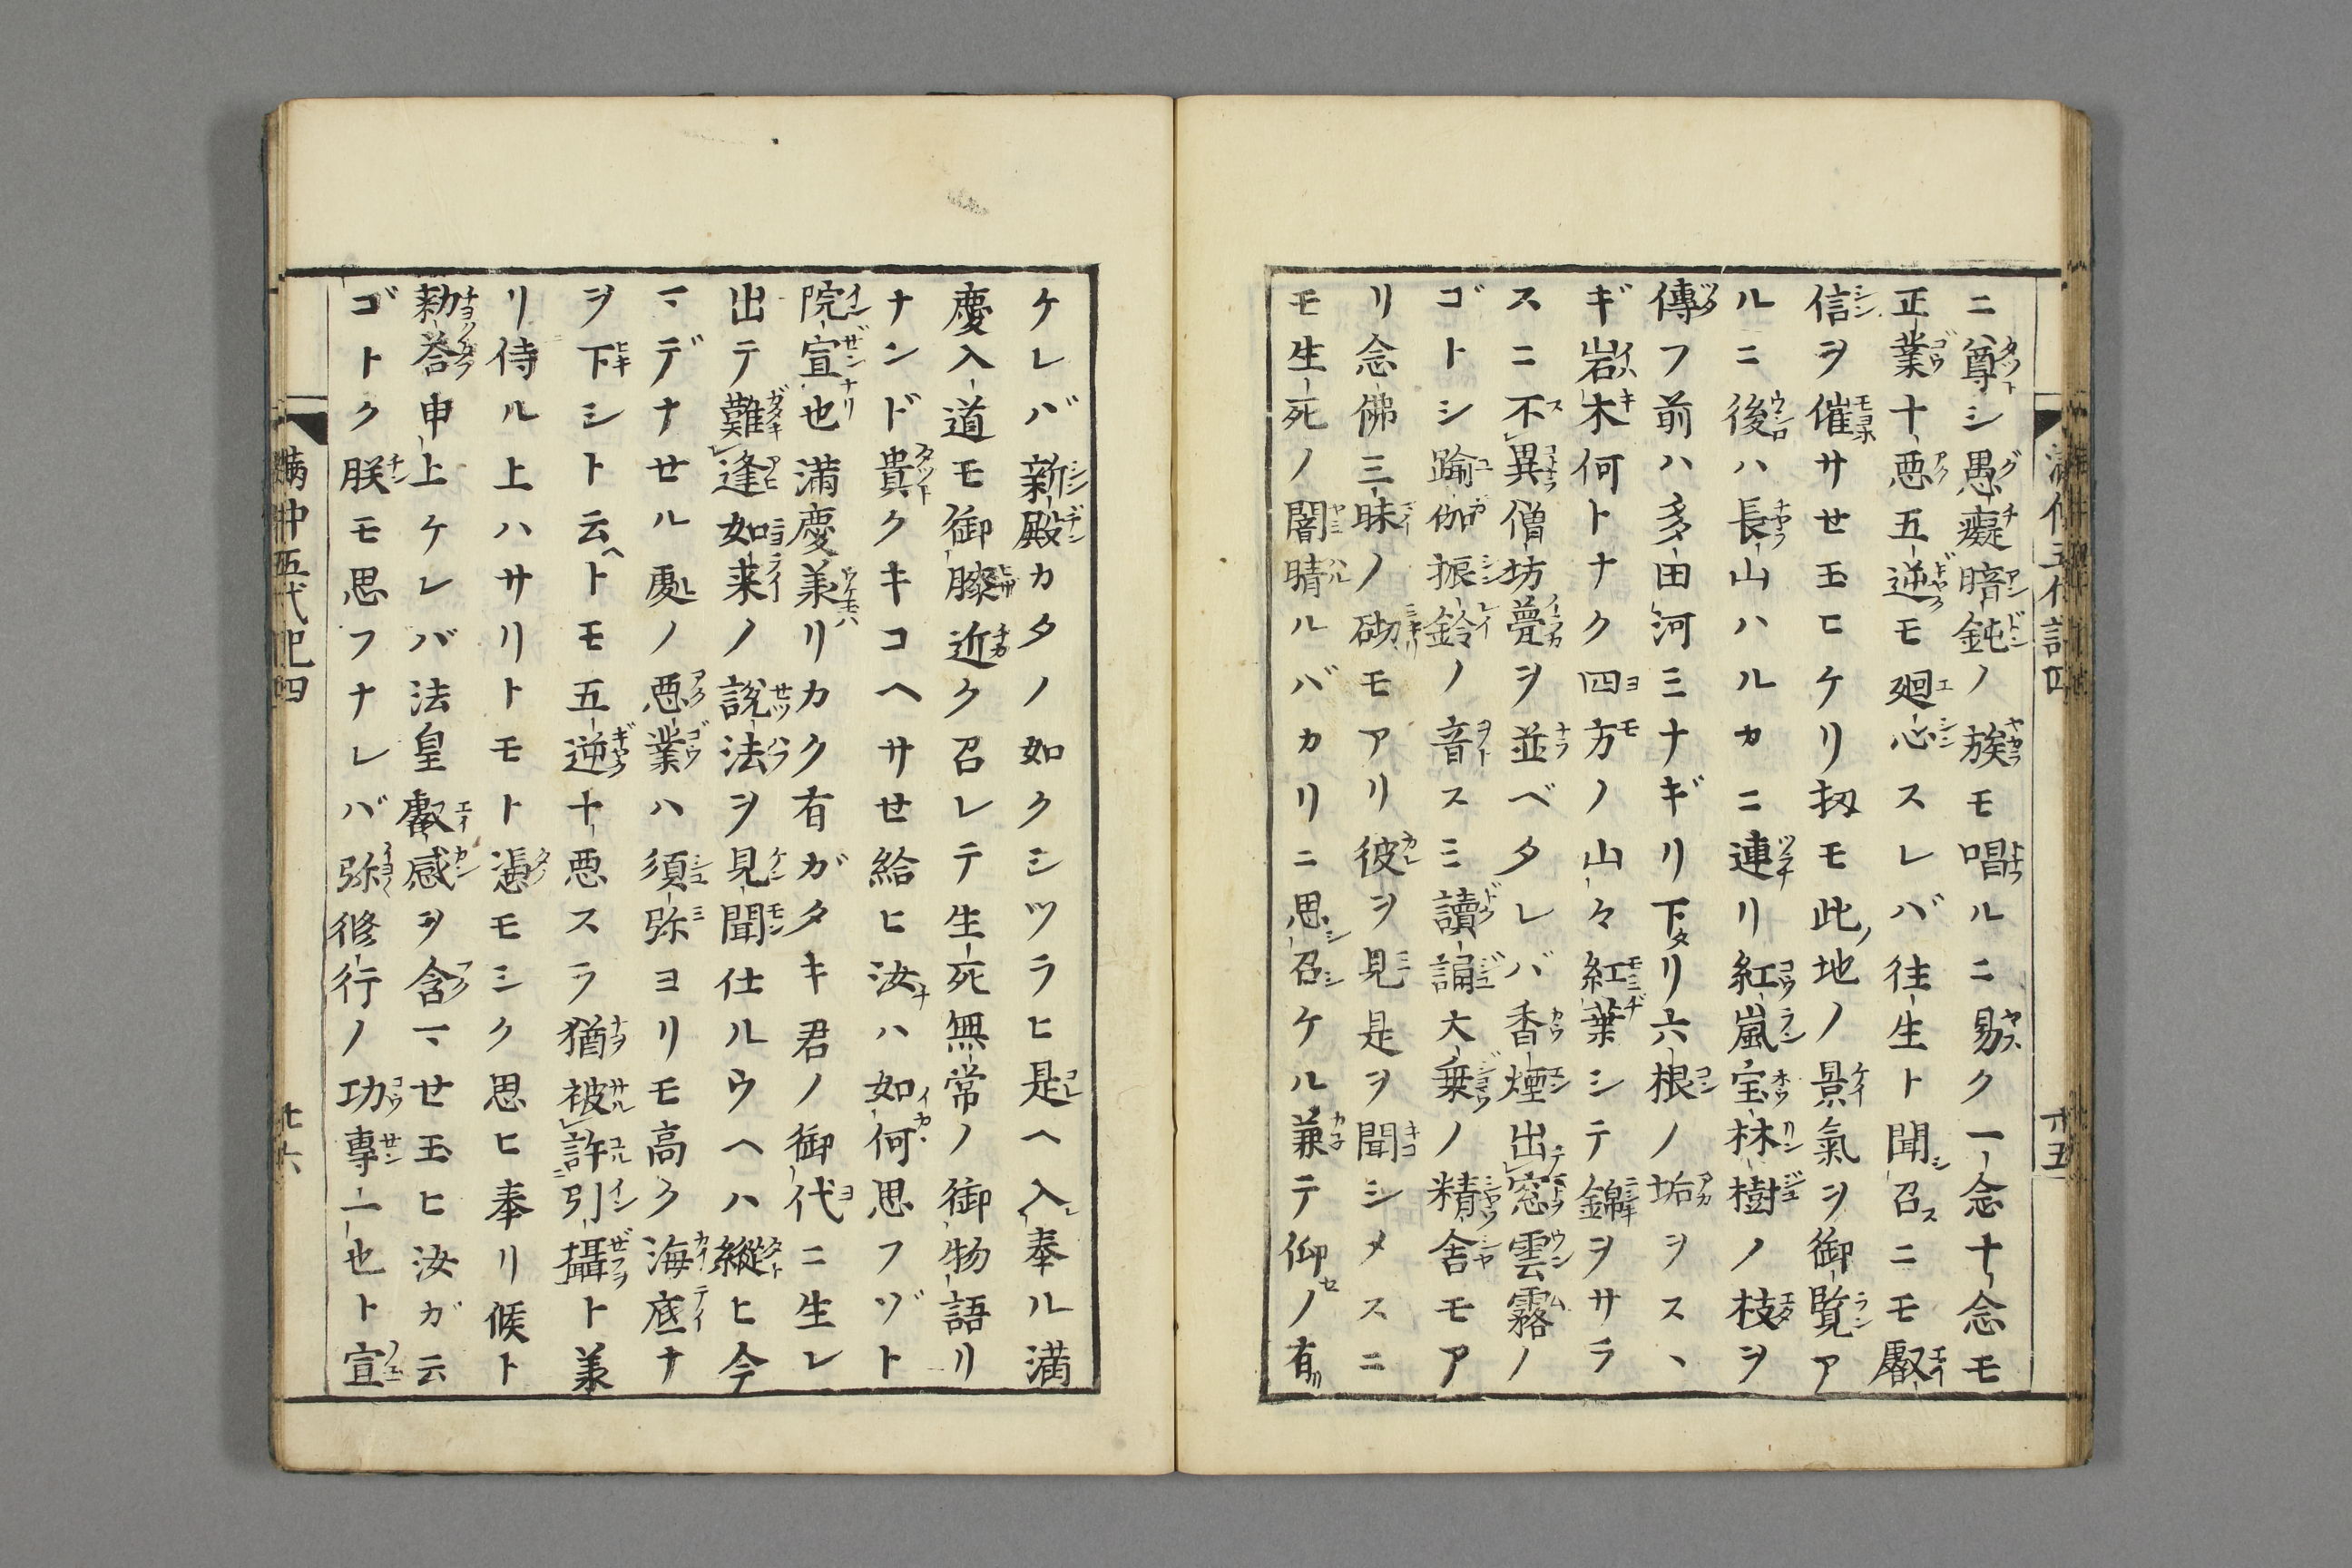 ニ尊シ愚癡暗鈍ノ族モ唱ルニ易ク一念十念モ
正業十悪五逆モ廻心スレバ往生ト聞召ニモ叡
信ヲ催サセ玉ヒケリ扨モ此地ノ景氣ヲ御覧ア
ルニ後ハ長山ハルカニ連リ紅嵐宝林樹ノ枝ヲ
傳フ前ハ多田河ミナギリ下リ六根ノ垢ヲスヽ
ギ岩木何トナク四方ノ山々紅葉シテ錦ヲサラ
スニ不異僧坊甍ヲ並ベタレバ香煙出窓雲霧ノ
ゴトシ踰伽振鈴ノ音スミ讀誦大乗ノ精舎モア
リ念佛三昧ノ砌モアリ彼ヲ見是ヲ聞シメスニ
モ生死ノ闇晴ルバカリニ思召ケル兼テ仰ノ有
ケレバ新殿カタノ如クシツラヒ是ヘ入奉ル満
慶入道モ御膝近ク召レテ生死無常ノ御物語リ
ナンド貴クキコヘサセ給ヒ汝ハ如何思フゾト
院宣也満慶兼リカク有ガタキ君ノ御代ニ生レ
出テ難逢如来ノ説法ヲ見聞仕ルウヘハ縦ヒ今
マデナセル處ノ悪業ハ須弥ヨリモ高ク海底ナ
ヲ下シト云ヘトモ五逆十悪スラ猶被許引攝ト兼
リ侍ル上ハサリトモト憑モシク思ヒ奉リ候ト
勅答申上ケレバ法皇叡感ヲ含マセ玉ヒ汝ガ云
ゴトク朕モ思フナレバ弥修行ノ功専一也ト宣
満仲五代記四
廿六